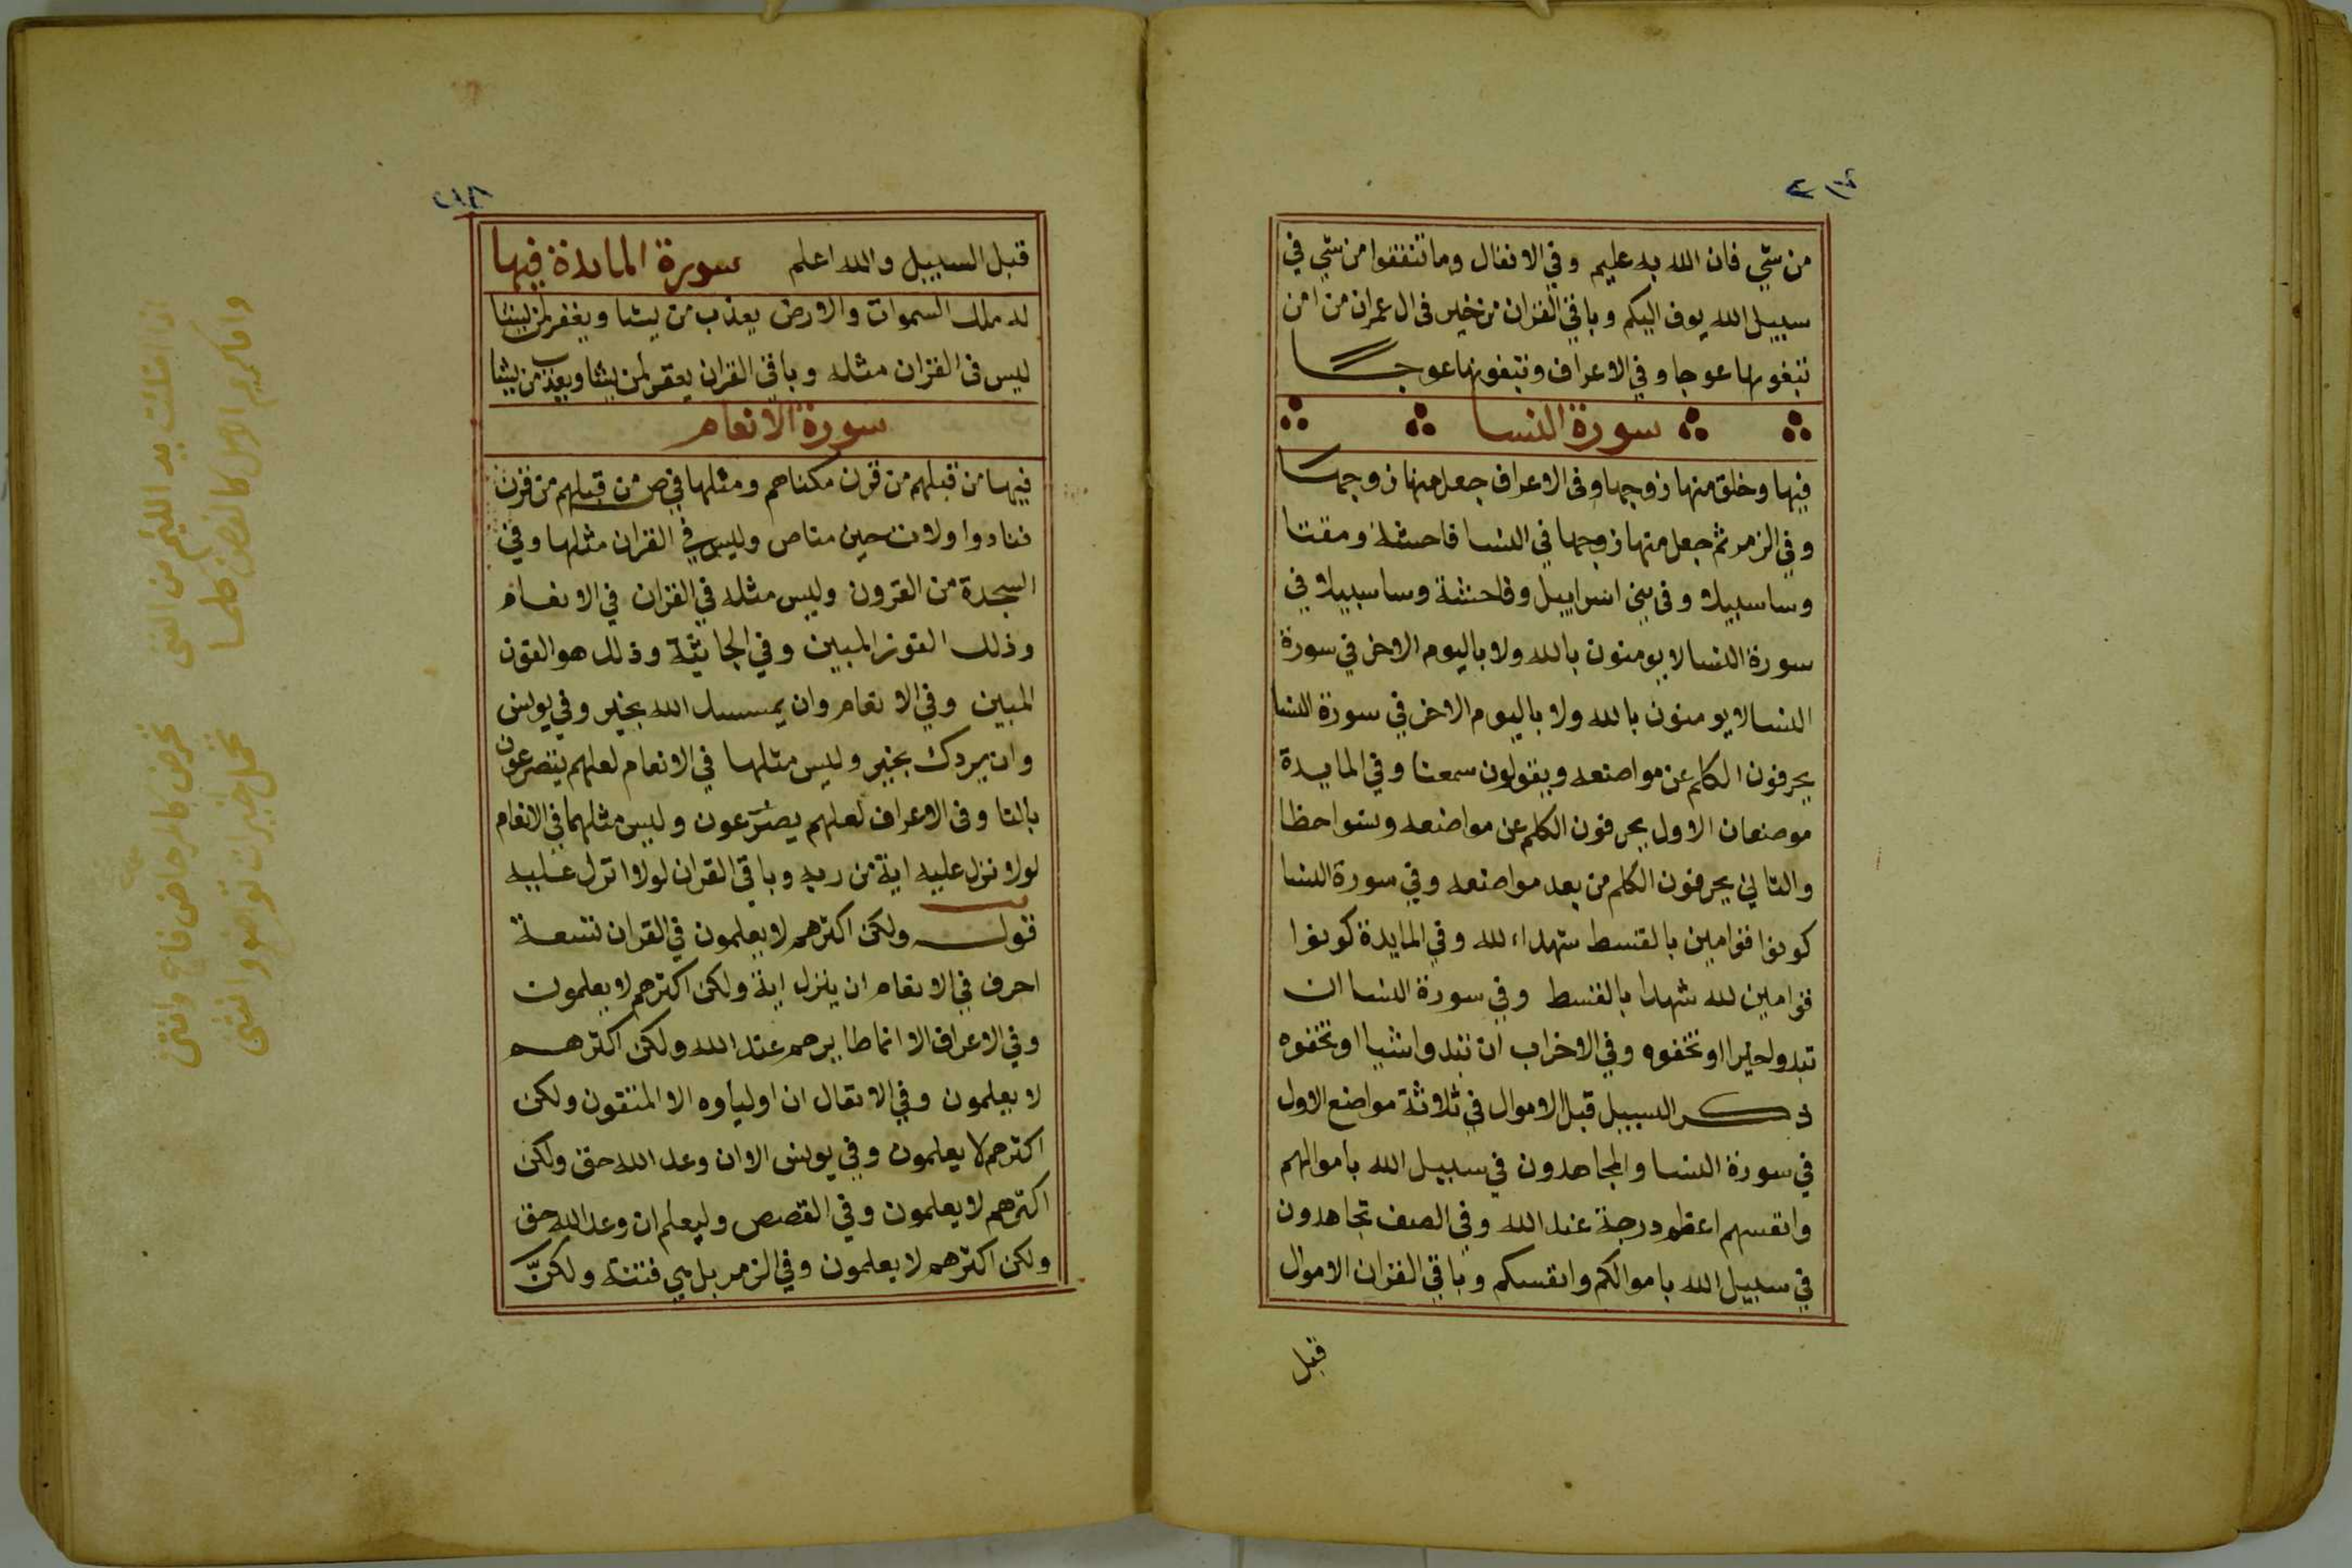 من شي فان الله به عليم وفي الانفال وما تنفقوا من شي في
سبيل الله يوف اليكم وباقي القران من خير في ال عمران من امن
تبغونها عوجا وفي الاعراف وتبغونها عوجا
سورة النسا
فيها وخلق منها زوجها وفي الاعراف جعل منها زوجها
وفي الزمر ثم جعل منها زوجها في النسا فاحشة ومقتا
وسا سبيلا وفي بني اسراييل وفاحشة وسا سبيلا في
سورة النسا لا يومنون بالله ولا باليوم الاخر في سورة
النسا لا يومنون بالله ولا باليوم الاخر في سورة النسا
يحرفون الكلم عن مواضعه ويقولون سمعنا وفي المايدة
موضعان الاول يحرفون الكلم عن مواضعه ونسوا حظا
والثاني يحرفون الكلم من بعد مواضعه وفي سورة النسا
كونوا قوامين بالقسط شهداء لله وفي المايدة كونوا
قوامين لله شهدا بالقسط وفي سورة النسا ان
تبدوا خيرا او تخفوه وفي الاحزاب ان تبدوا شيا او تخفوه
ذكر السبيل قبل الاموال في ثلاثة مواضع الاول
في سورة النسا والمجاهدون في سبيل الله باموالهم
وانفسهم اعظم درجة عند الله وفي الصف تجاهدون
في سبيل الله باموالكم وانفسكم وباقي القران الاموال
قبل
قبل السبيل والله اعلم سورة المائدة فيها
له ملك السموات والارض يعذب من يشا ويغفر لمن يشا
ليس في القران مثله وباقي القران يغفر لمن يشا ويعذب من يشا
سورة الانعام
فيها من قبلهم من قرن مكناهم ومثلها في ص من قبلهم من قرن
فنادوا ولات حين مناص وليس في القران مثلها وفي
السجدة من القرون وليس مثله في القران في الانعام
وذلك الفوز المبين وفي الجاثية وذلك هو الفوز
المبين وفي الانعام وان يمسسك الله بخير وفي يونس
وان يردك بخير وليس مثلها في الانعام لعلهم يتضرعون
بالتا وفي الاعراف لعلهم يضرعون وليس مثلهما في الانعام
لولا نزل عليه اية من ربه وباقي القران لولا انزل عليه
قول ولكن اكثرهم لا يعلمون في القران تسعة
احرف في الانعام ان ينزل اية ولكن اكثرهم لا يعلمون
وفي الاعراف الا انما طايرهم عند الله ولكن اكثرهم
لا يعلمون وفي الانفال ان اولياوه الا المتقون ولكن
اكثرهم لا يعلمون وفي يونس الا ان وعد الله حق ولكن
اكثرهم لا يعلمون وفي القصص وليعلم ان وعد الله حق
ولكن اكثرهم لا يعلمون وفي الزمر بل هي فتنة ولكن